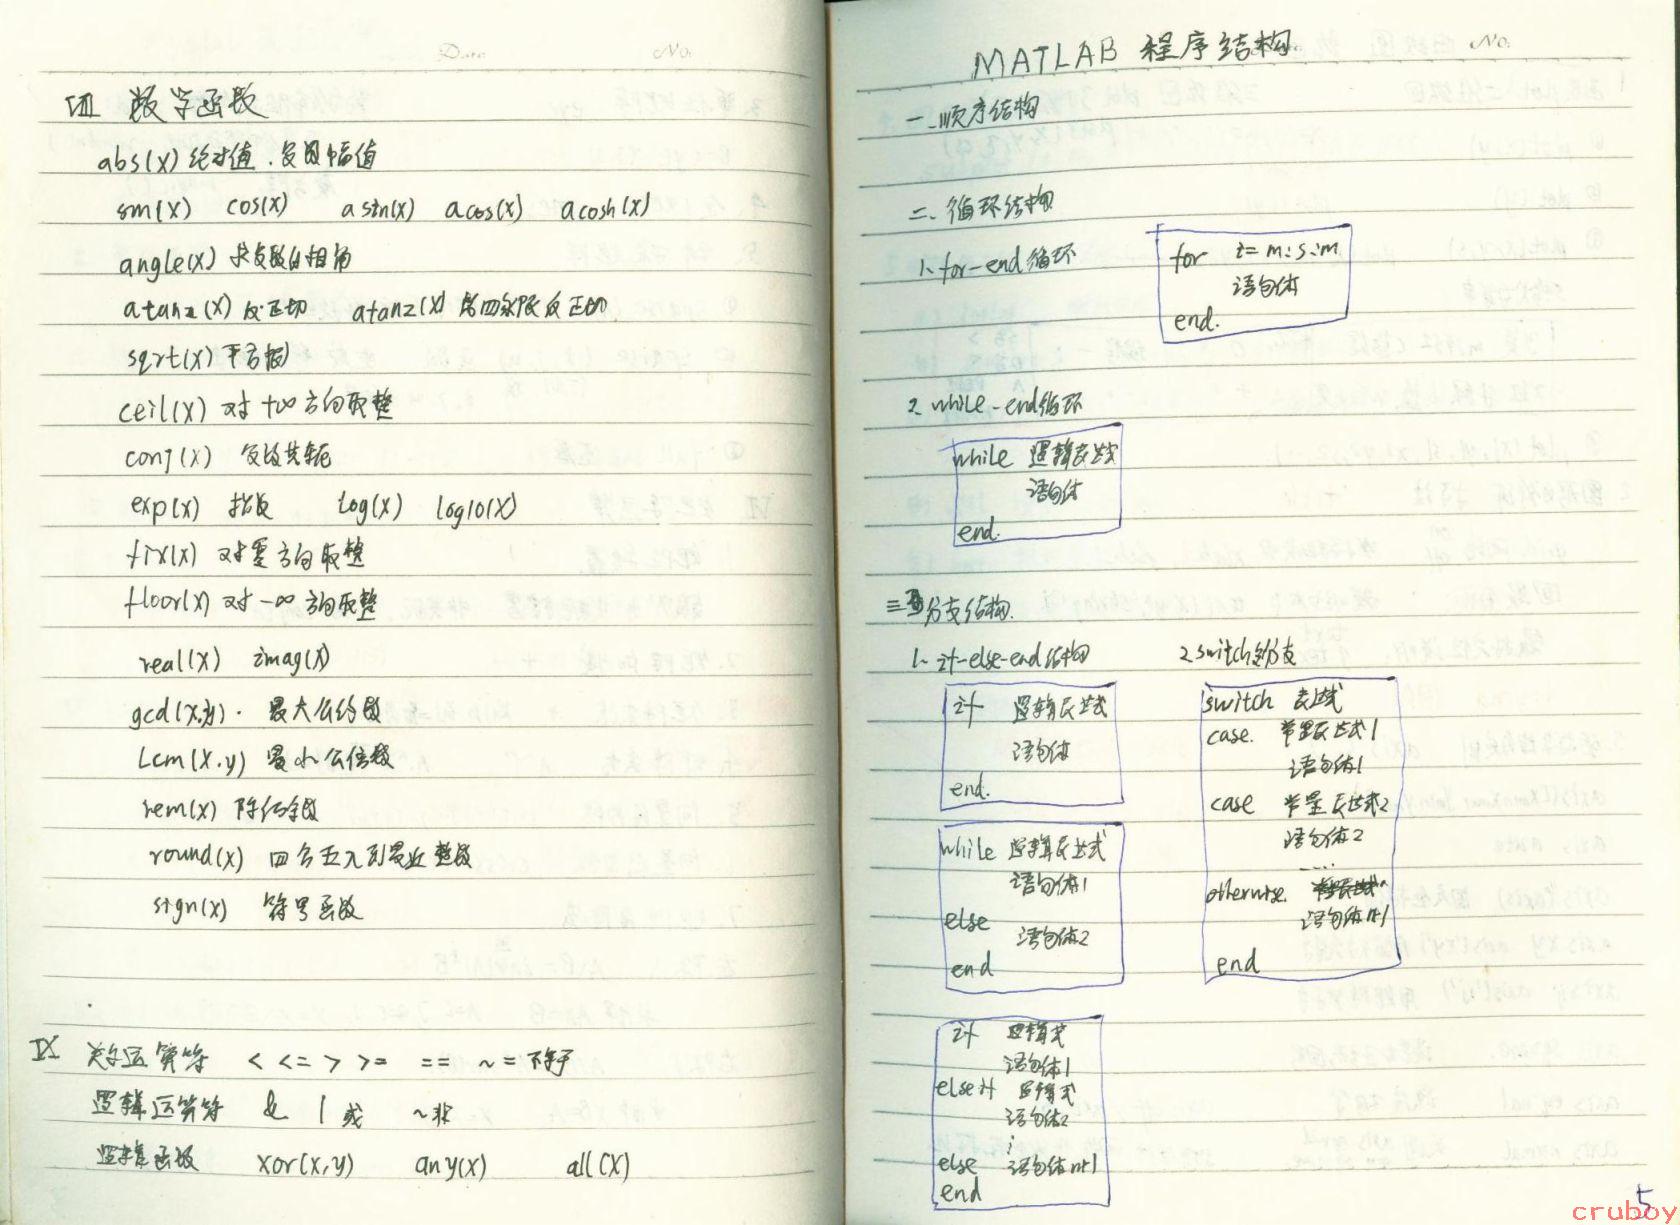 Date No.
VIII 数学函数
abs(x) 绝对值.复数幅值
sin(x) cos(x) asin(x) acos(x) acosh(x)
angle(x) 求复数的相角
atanz(x) 反正切 atanz(x) 第四象限反正切
sqrt(x) 平方根
ceil(x) 对+∞方向取整
conj(x) 复数共轭
exp(x) 指数 Log(x) log10(x)
fix(x) 对零方向取整
floor(x) 对-∞方向取整
real(x) imag(x)
gcd(x,y). 最大公约数
Lcm(x,y) 最小公倍数
rem(x) 除法余数
round(x) 四舍五入到最近整数
sign(x) 符号函数
IX 关系运算符 < <= > >= == ~=不等于
逻辑运算符 & | 或 ~非
逻辑函数 xor(x,y) any(x) all(x)
No.
MATLAB 程序结构
一.顺序结构
二、循环结构
1、for-end循环
for i=m:s:m
语句体
end.
2、while-end循环
while 逻辑表达式
语句体
end.
三 分支结构.
1、if-else-end结构
if 逻辑表达式
语句体
end.
while 逻辑表达式
语句体1
else
语句体2
end
if 逻辑式
语句体1
elseif 逻辑式
语句体2
⋮
else 语句体n+1
end
2.switch分支
switch 表达式
case. 常量表达式1
语句体1
case 常量表达式2
语句体2
...
otherwise.
语句体n+1
end
5
cruboy